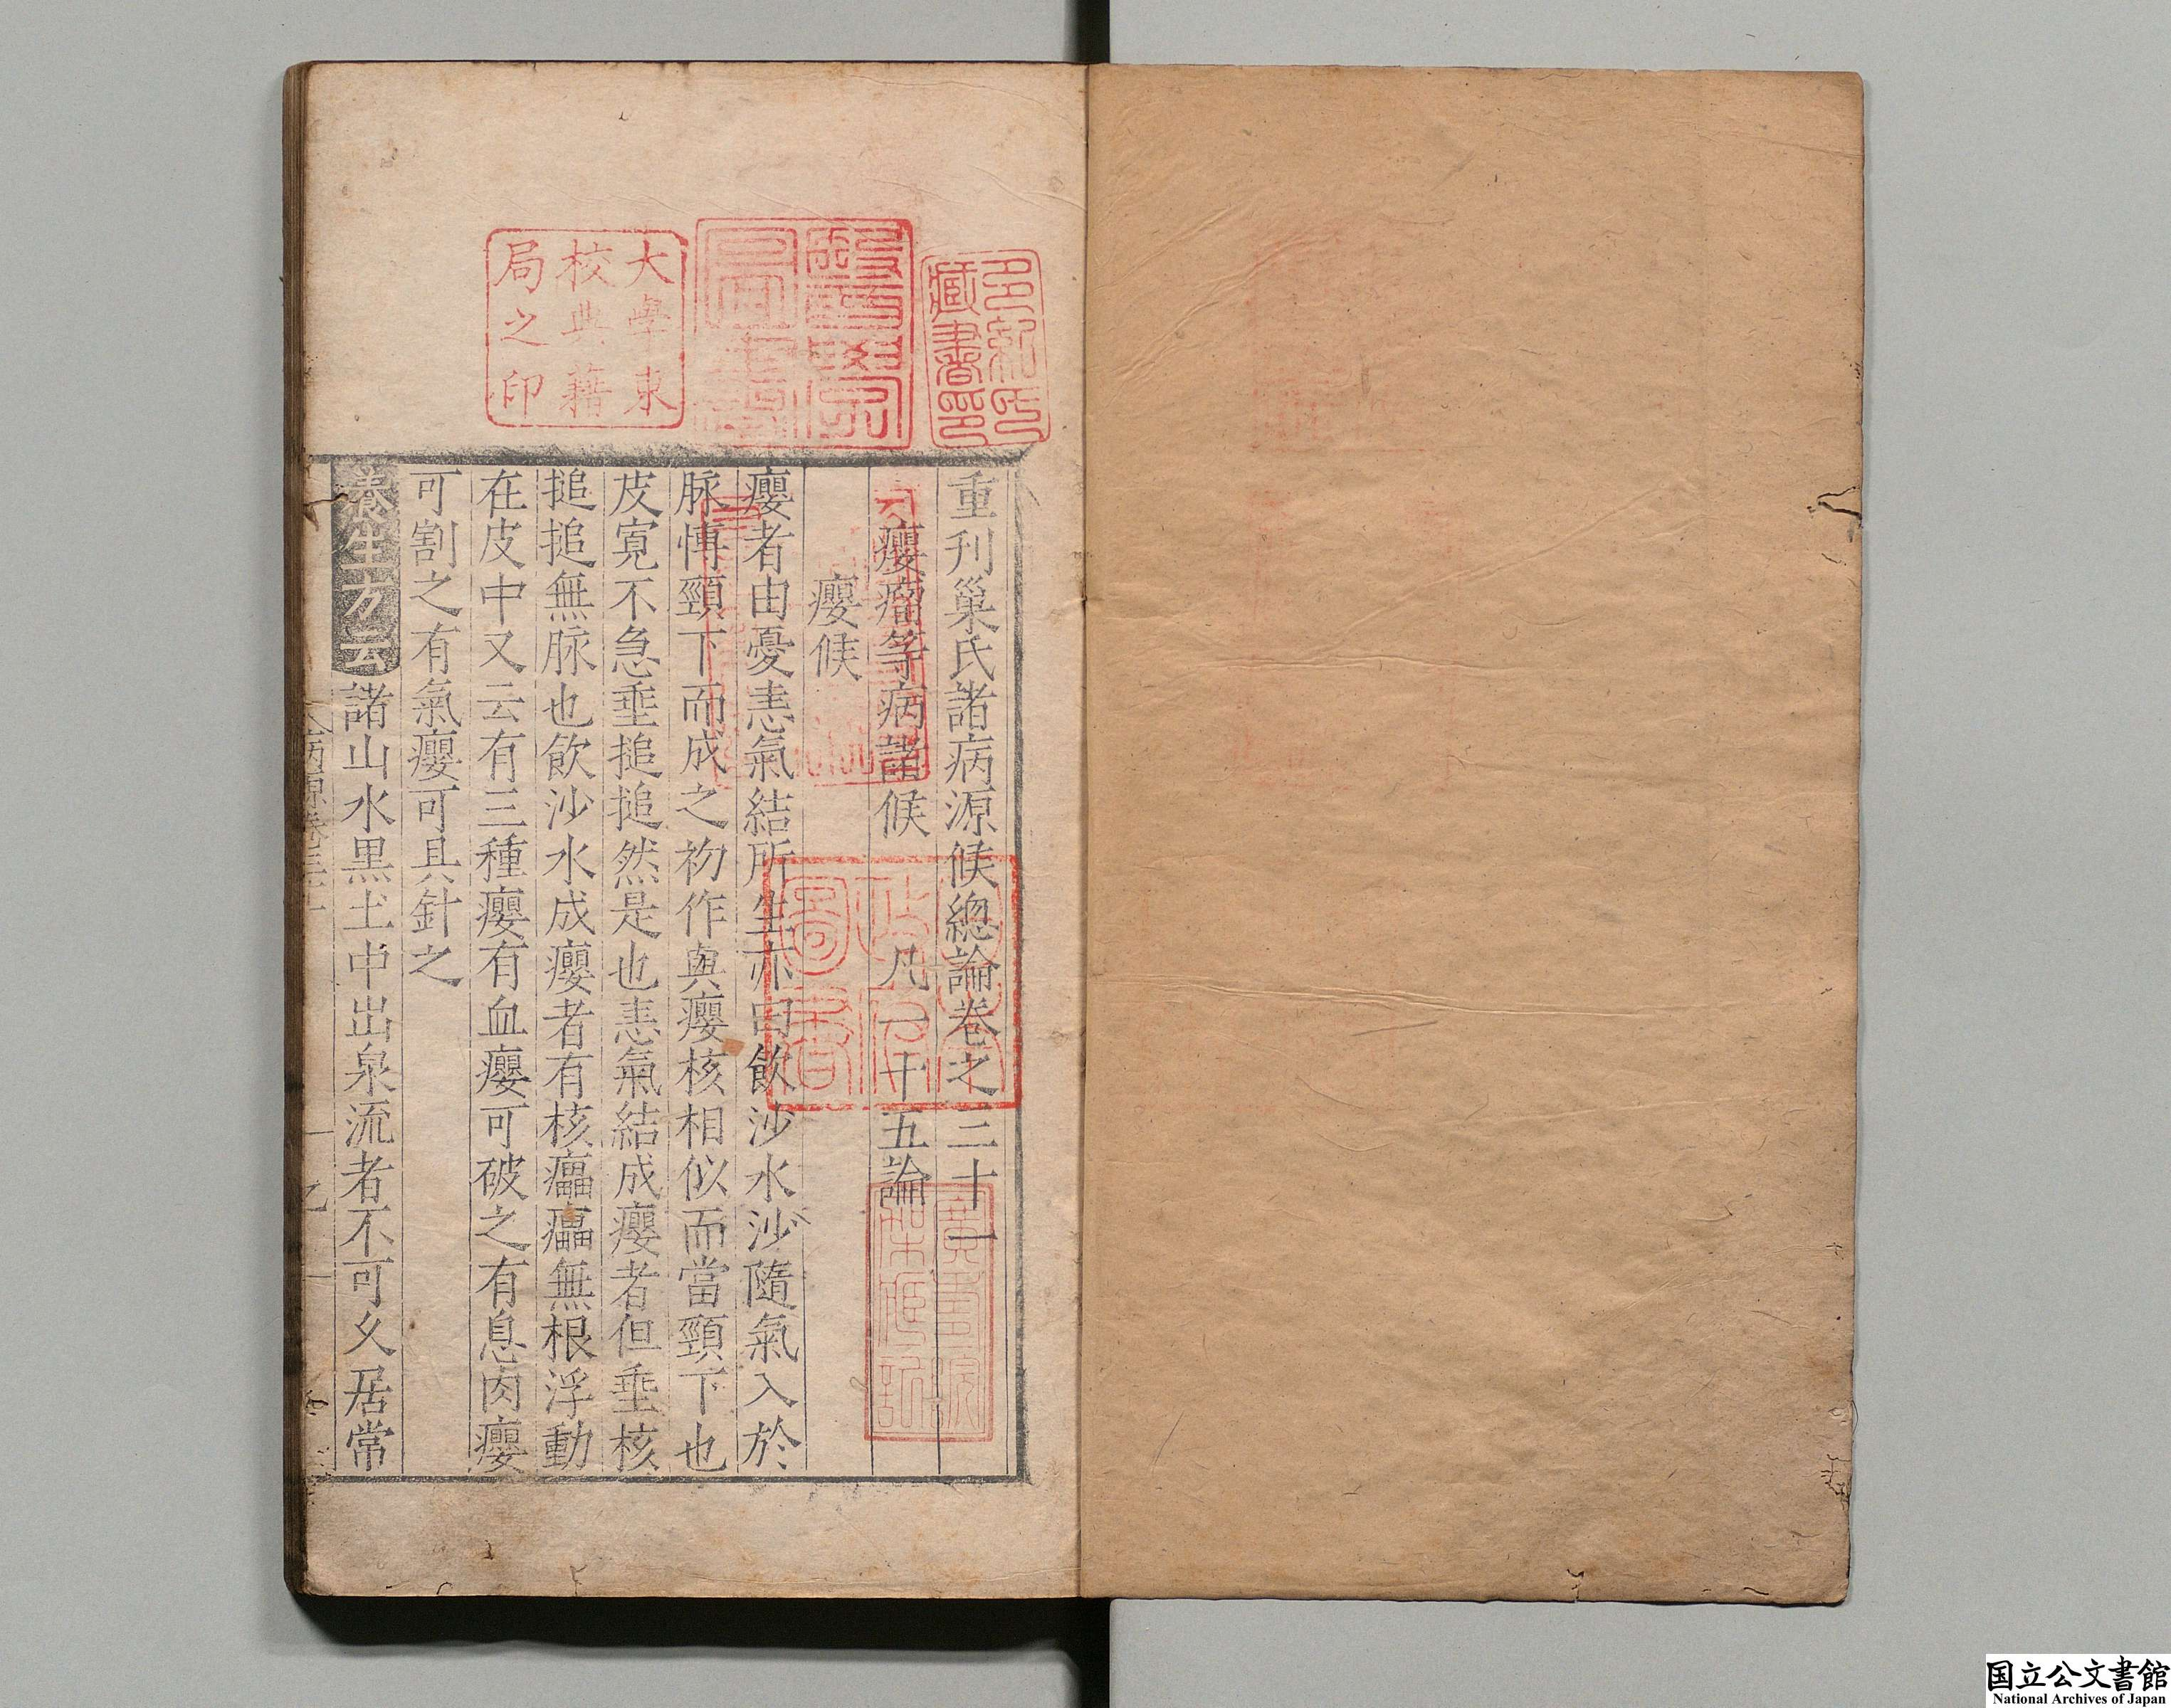 重刊巢氏諸病源候總論卷之三十一
癭瘤等病諸候　凡一十五論
癭候
癭者由憂恚氣結所生亦曰飲沙水沙隨氣入於
脉慱頸下而成之初作與癭核相似而當頸下也
皮寛不急垂搥搥然是也恚氣結成癭者但垂核
搥搥無脉也飲沙水成癭者有核㿔㿔無根浮動
在皮中又云有三種癭有血癭可破之有息肉癭
可割之有氣癭可具針之
養生方云諸山水黒土中出泉流者不可久居常
病源卷三十一
多紀氏
藏書印
大學東
校典籍
局之印
圖書
国立公文書館
National Archives of Japan